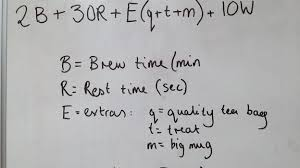 2B + 30R + E(q+t+m) + 10W
B = Brew time (min
R = Rest time (sec)
E = extras: q = quality tea bag
t = treat
m = big mug